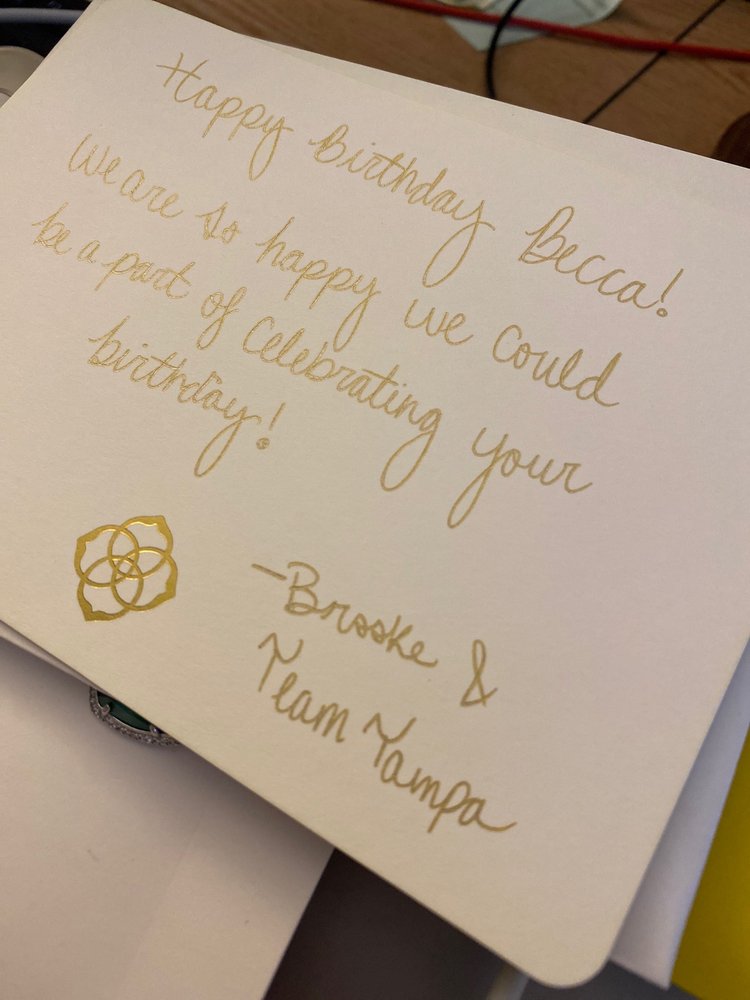 Happy Birthday Becca!
We are so happy we could
be a part of celebrating your
birthday!
-Brooke &
Team Tampa